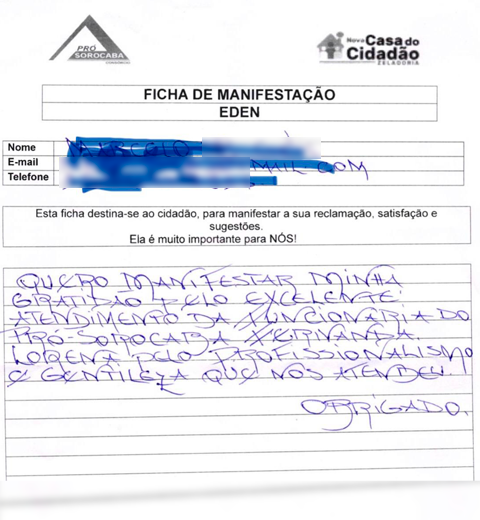 PRÓ
SOROCABA
Nova Casa do
Cidadão
ZELADORIA
FICHA DE MANIFESTAÇÃO
EDEN
Nome
E-mail MAIL COM
Telefone
Esta ficha destina-se ao cidadão, para manifestar a sua reclamação, satisfação e
sugestões.
Ela é muito importante para NÓS!
QUERO MANIFESTAR MINHA
GRATIDÃO PELO EXCELENTE
ATENDIMENTO DA FUNCIONÁRIA DO
PRÓ-SOROCABA FERNANDA
LORENA PELO PROFISSIONALISMO
E GENTILEZA QUE NOS ATENDEU.
OBRIGADO.